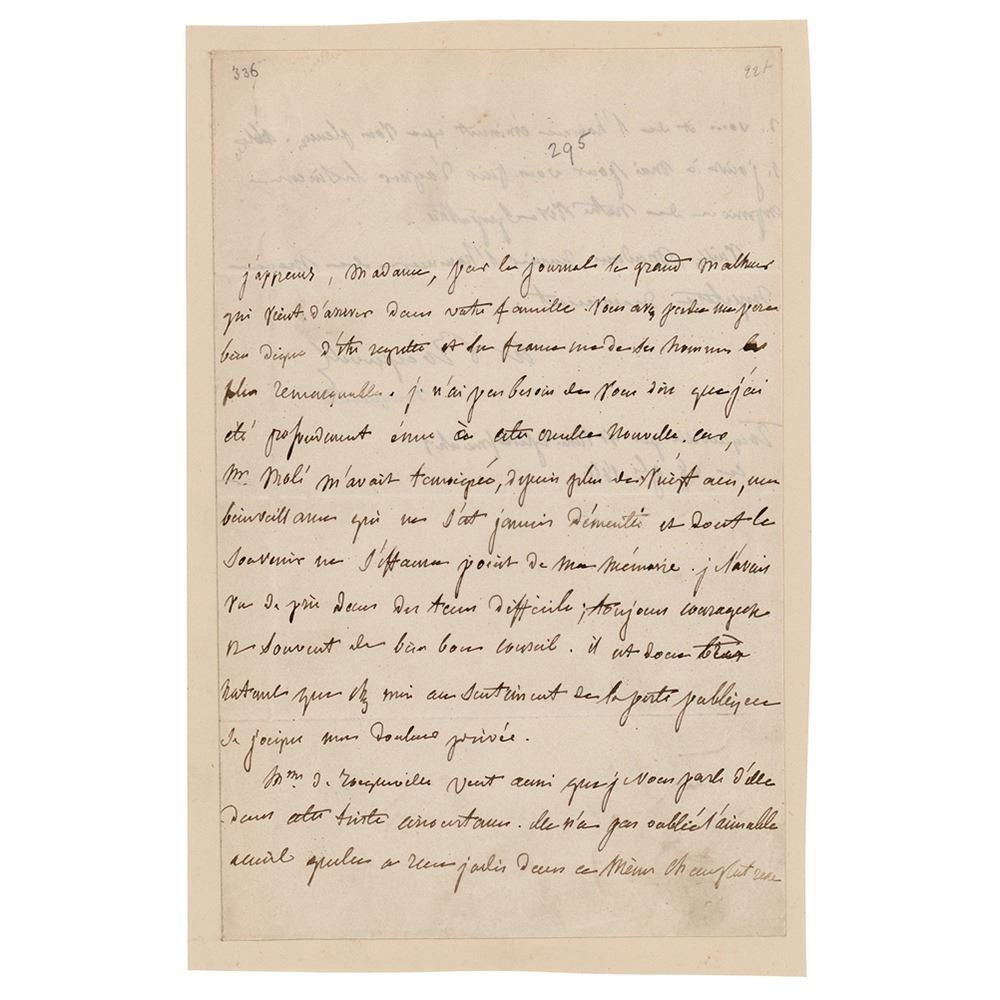 336
221
295
j'apprends, Madame, par les journal le grand malheur
qui vient d'arriver dans votre famille. Vous avez perdu un père
bien digne d'être regretté et la france un de ses hommes les
plus remarquables. je n'ai pas besoin de vous dire que j'ai
été profondément ému à cette cruelle nouvelle. car,
Mr Molé m'avait témoigné, depuis plus de vingt ans, une
bienveillance qui ne s'est jamais démentie et dont le
souvenir ne s'effacera point de ma mémoire. je l'avais
vu de près dans des tems difficiles; toujours courageux
et souvent de bien bon conseil. il est donc bien
naturel que chez moi au sentiment de la perte publique
se joigne une douleur privée.
Mme de Tocqueville veut aussi que je vous parle d'elle
dans cette triste circonstance. elle n'a pas oublié l'aimable
accueil qu'elle a reçu jadis dans ce même Champlatreux